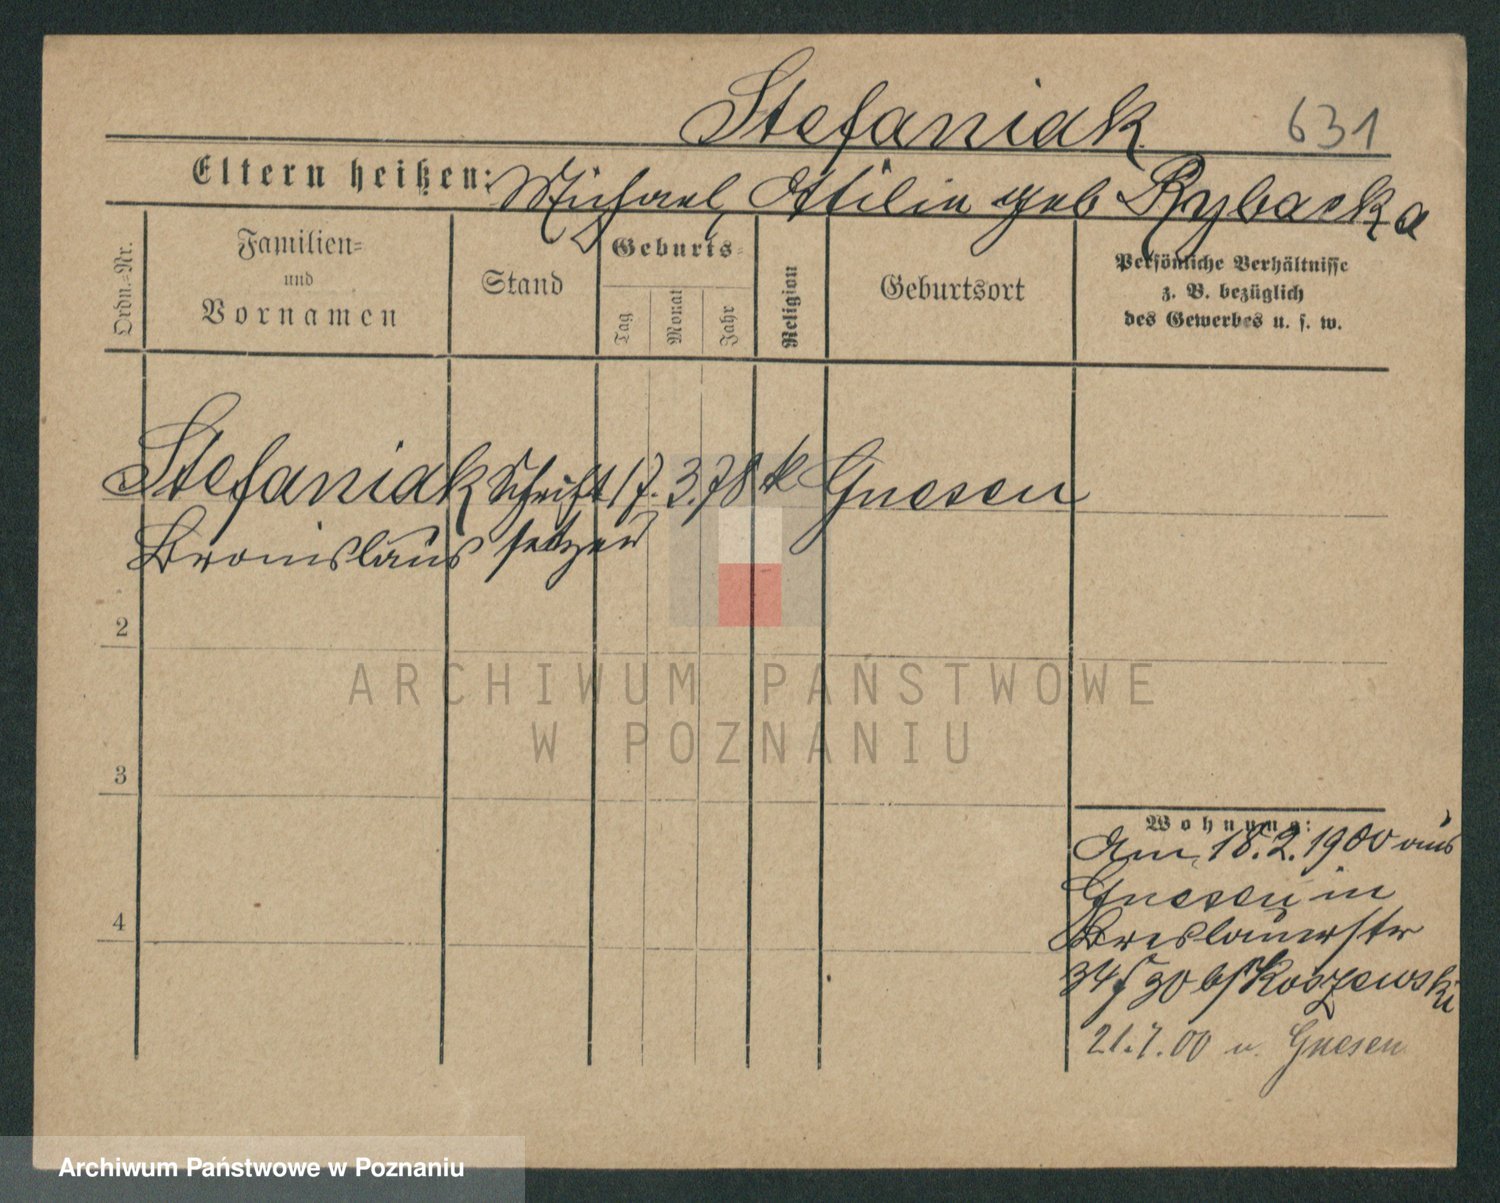 Stefaniak 631
Eltern heißen: Michael, Ottilie geb Rybacka
Ordn.-Nr.
Familien-
und
Vornamen
Stand
Geburts-
Tag
Monat
Jahr
Religion
Geburtsort
Persönliche Verhältnisse
z. B. bezüglich
des Gewerbes u. s. w.
Stefaniak Schrift 17. 3. 78 k Gnesen
Bronislaus setzer
2
3
4
Wohnung:
Am 18. 2. 1900 aus
Gnesen in
Breslauerstr
34 30 b/ Koszewski
21.7.00 n. Gnesen
ARCHIWUM PAŃSTWOWE
W POZNANIU
Archiwum Państwowe w Poznaniu